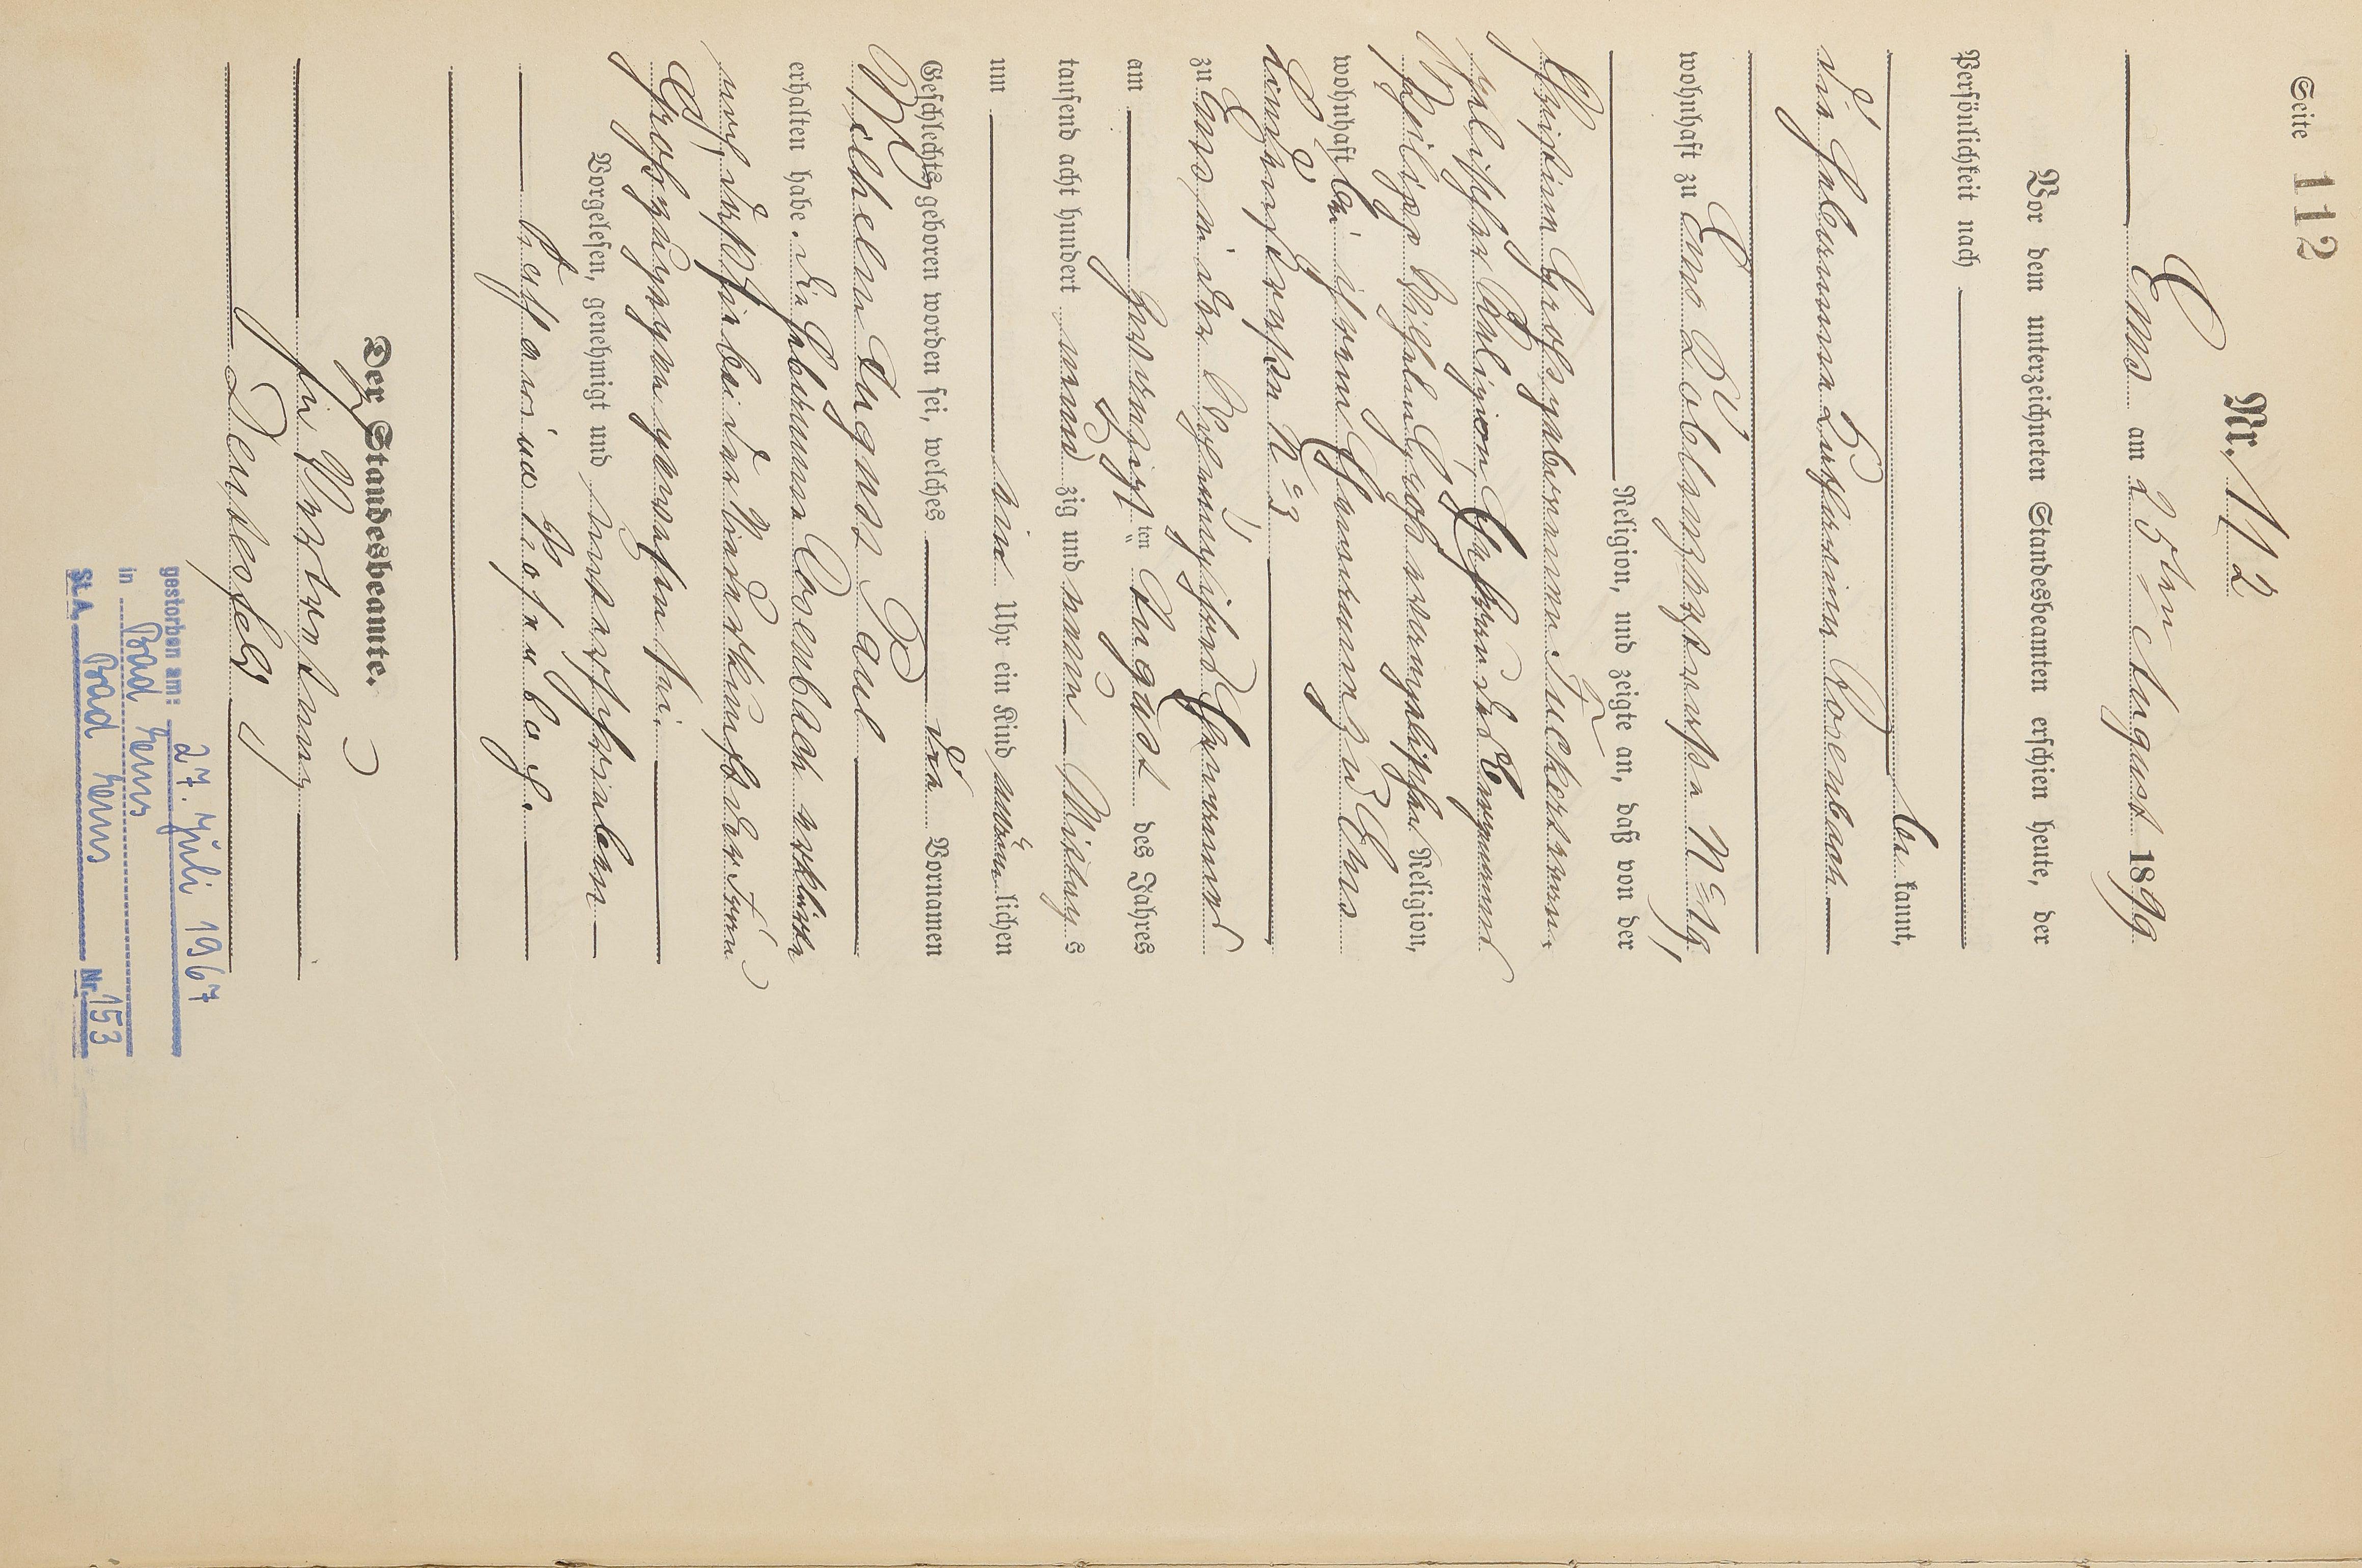 Seite 112
Nr. 112
Ems am 25ten August 1899
Vor dem unterzeichneten Standesbeamten erschien heute, der
Persönlichkeit nach
be kannt,
die Hebamme Katharina Rosenbach
wohnhaft zu Ems Koblenzerstraße No 19,
Religion, und zeigte an, daß von der
Christiane Groß geborenen Tuckermann
evangelischer Religion, Ehefrau des
Philipp Wilhelm Groß evangelischer Religion,
wohnhaft bei ihrem Ehemann zu Ems
No 3
zu Ems in der Wohnung ihres Ehemannes
am zwanzigsten August des Jahres
tausend acht hundert neun zig und neun Mittags
um ein Uhr ein Kind männlichen
Geschlechts geboren worden sei, welches die Vornamen
Wilhelm August Paul
erhalten habe. Die Hebamme Rosenbach erklärte
noch, daß sie bei der Niederkunft der Frau
Groß zugegen gewesen sei.
Vorgelesen, genehmigt und unterschrieben
Katharina Rosenbach.
Der Standesbeamte.
In Vertretung
gestorben am: 27. Juli 1967
in Bad Ems
St. A. Bad Ems Nr. 153